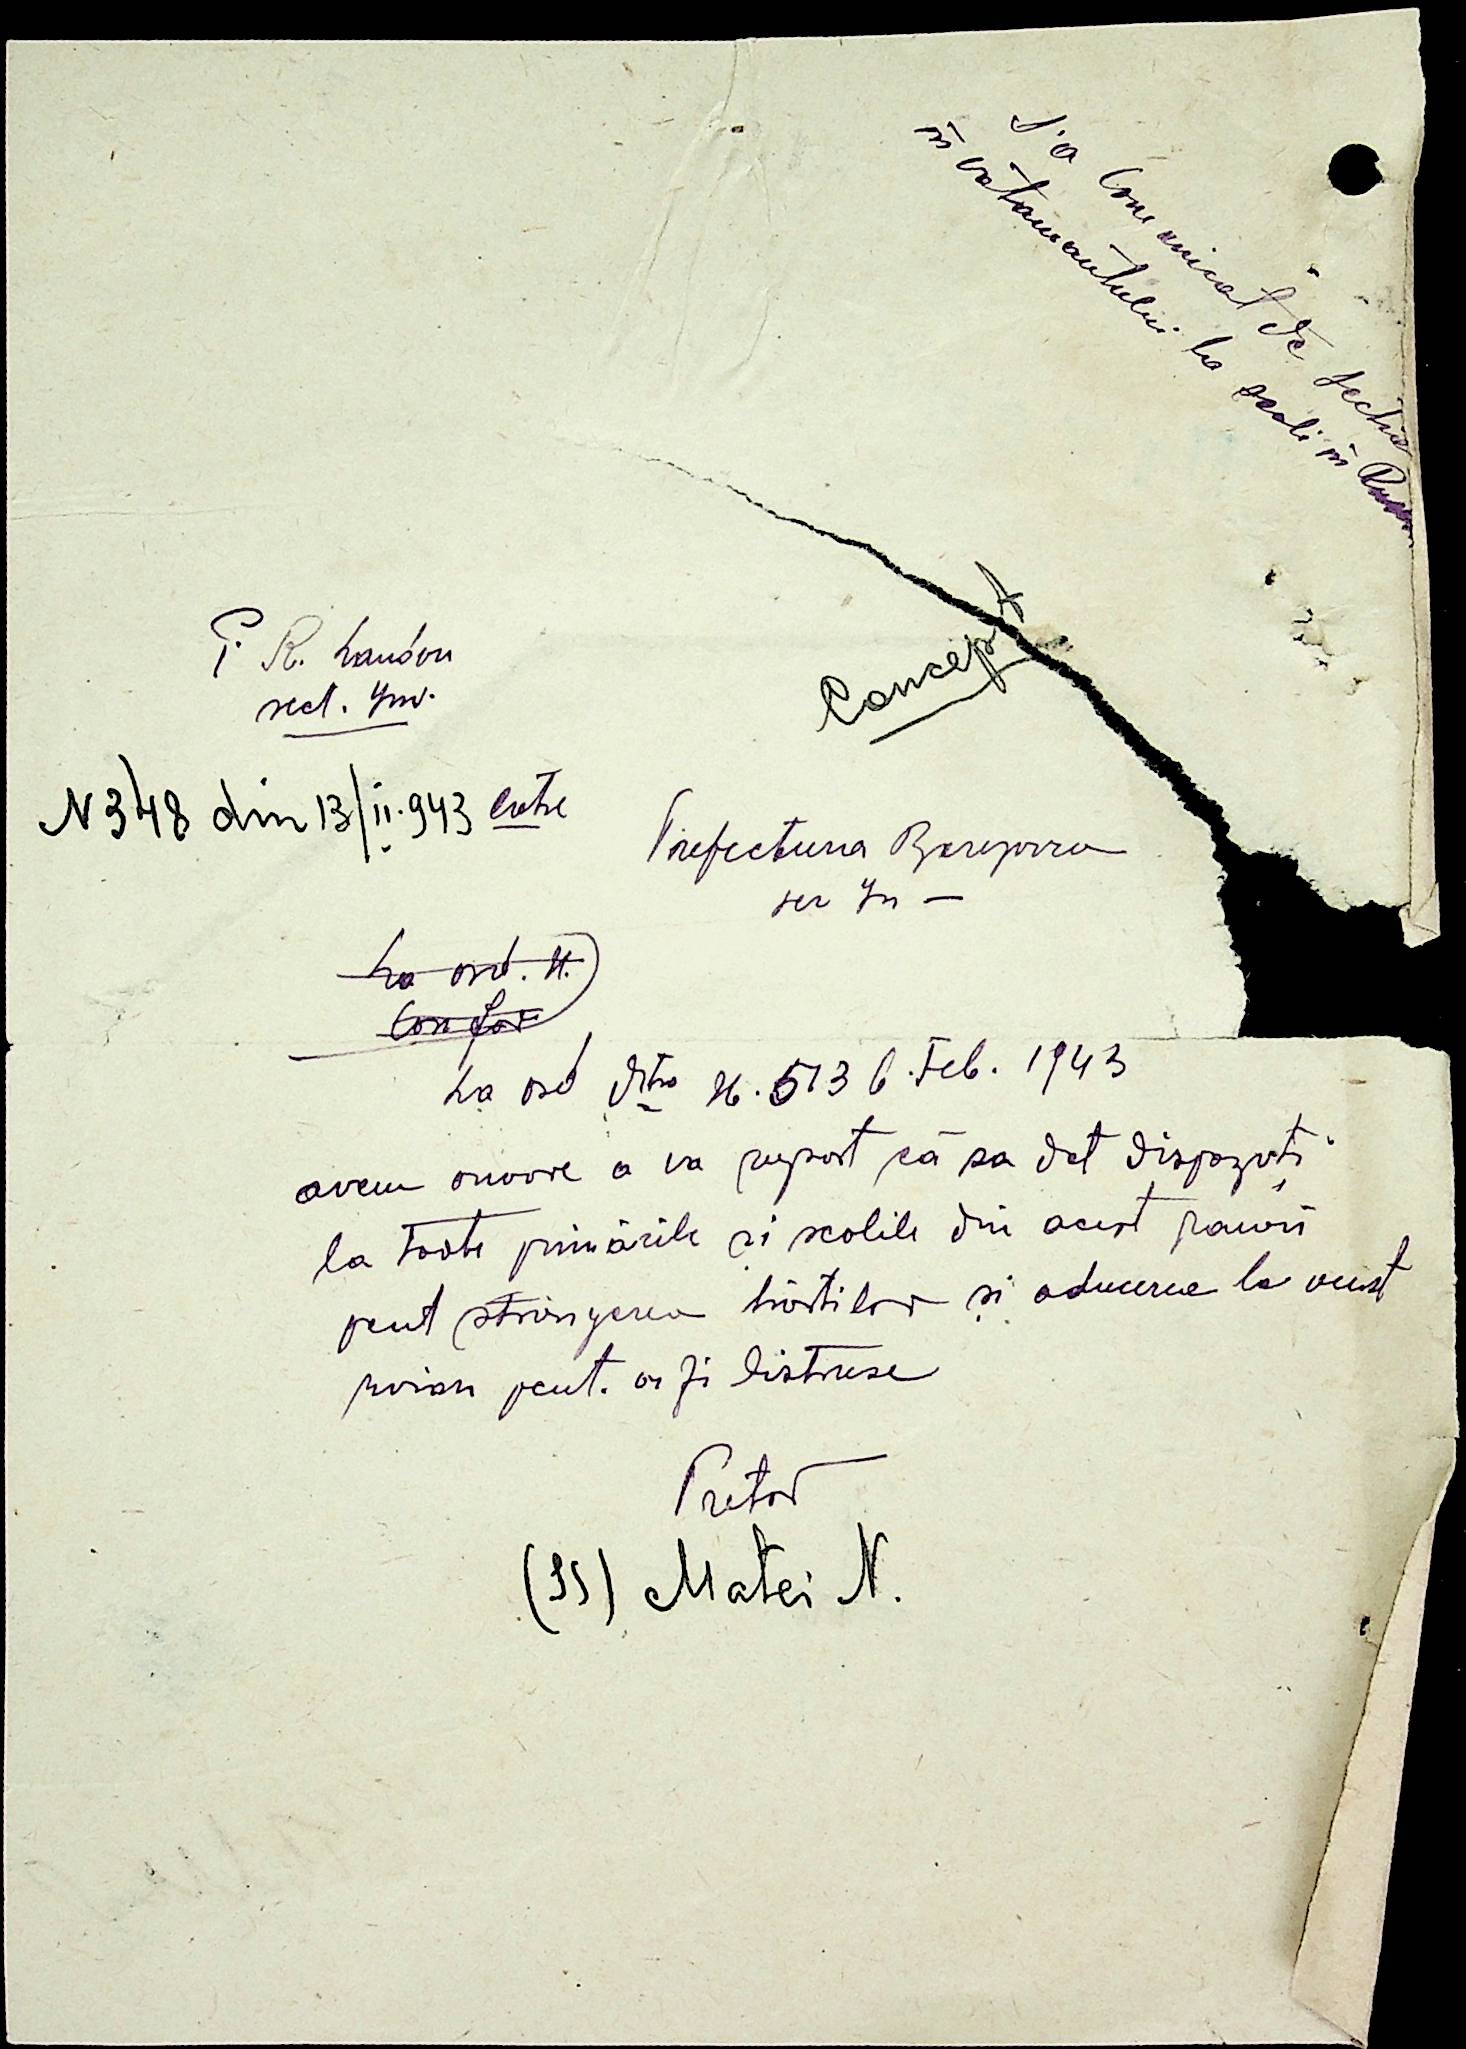 S'a Comunicat de sectia
învatamantului la scoli in
Concept
P. R. Landau
sect. Inv.
N 348 din 13/II.943 catre
Prefectura Berezovca
ser In —
La ord. N.
Confor
La ord Dtra N. 513 6.Feb. 1943
avem onoore a va raport că sa dat dispoziți
la toate primăriile și scolile din acest raion
pent strângerea hărtilor și aducerea la acest
raion pent. a fi distruse
Pretor
(SS) Matei N.